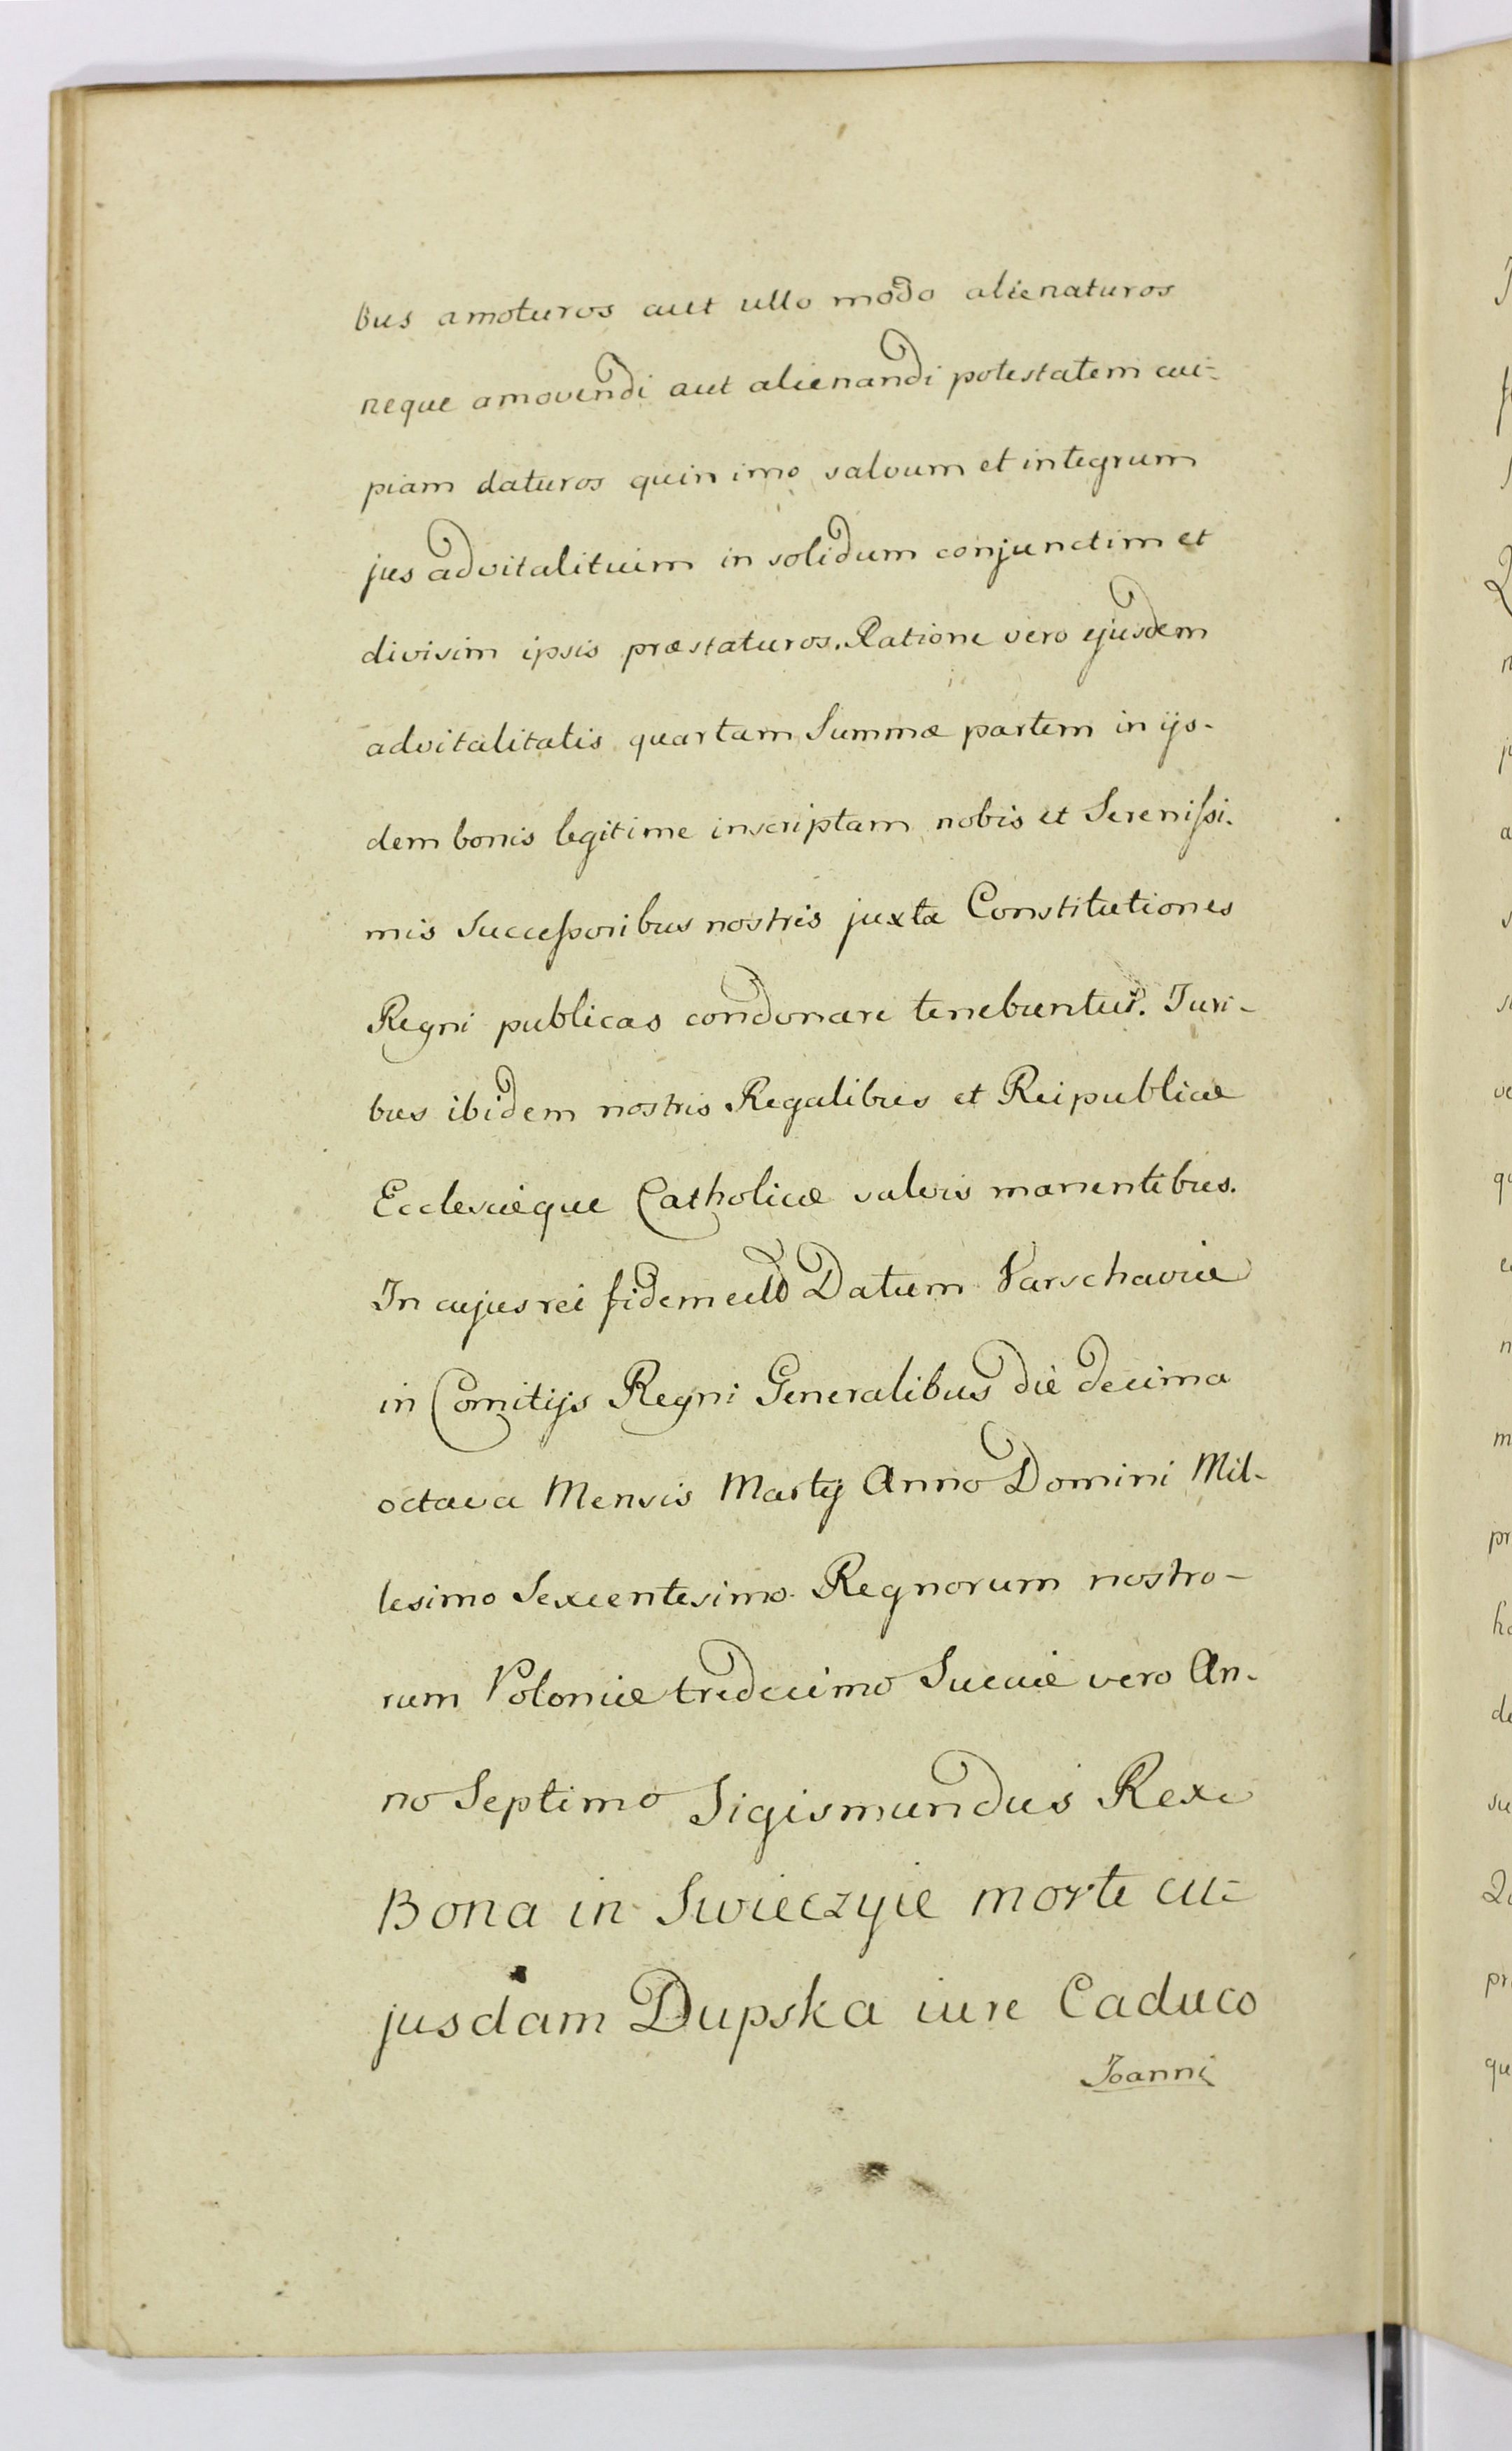 bus amoturos aut ullo modo alienaturos
neque amovendi aut alienandi potestatem cui-
piam daturos quin imo salvum et integrum
jus advitalitium in solidum conjunctim et
divisim ipsis præstaturos. Ratione vero ejusdem
advitalitatis quartam Summæ partem in ijs-
dem bonis legitime inscriptam nobis et Serenissi-
mis Successoribus nostris juxta Constitutiones
Regni publicas condonare tenebuntur. Juri-
bus ibidem nostris Regalibus et Reipublicæ
Ecclesiæque Catholicæ salvis manentibus.
In cujus rei fidem Datum Varschaviæ
in Comitijs Regni Generalibus die decima
octava Mensis Martij Anno Domini Mil-
lesimo Sexcentesimo Regnorum nostro-
rum Poloniæ tredecimo Sueciæ vero An-
no Septimo Sigismundus Rex
Bona in Swieczyie morte cu-
jusdam Dupska iure Caduco
Joanni